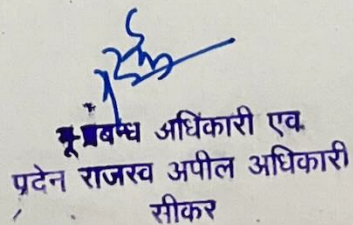 भू-प्रबन्ध अधिकारी एव
प्रदेन राजस्व अपील अधिकारी
सीकर